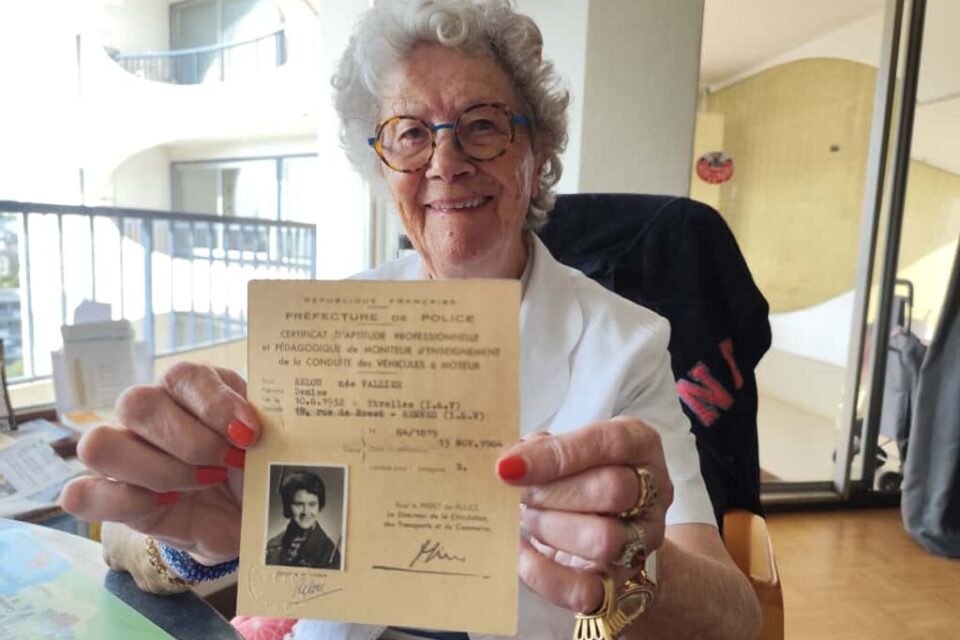 RÉPUBLIQUE FRANÇAISE
PRÉFECTURE DE POLICE
CERTIFICAT D'APTITUDE PROFESSIONNELLE
et PÉDAGOGIQUE de MONITEUR d'ENSEIGNEMENT
de la CONDUITE des VÉHICULES à MOTEUR
RELOU née VALLIER
Denise
10.6.1932 - Etrelles (I.&.V)
19, rue de Brest - RENNES (I.&.V)
64/1819
13 NOV. 1964
B.
Pour le PRÉFET de POLICE
Le Directeur de la Circulation,
des Transports et du Commerce,